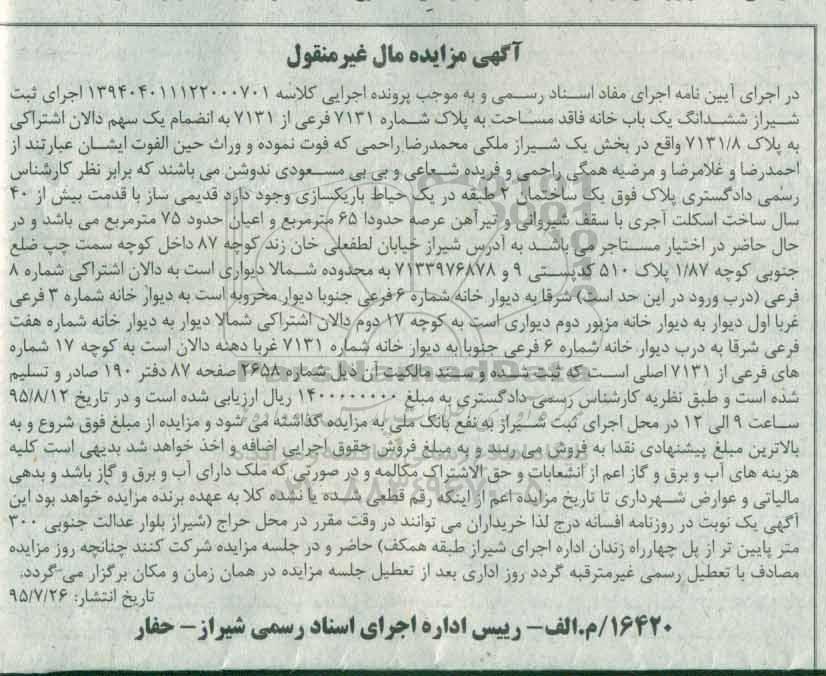 آگهی مزایده مال غیرمنقول
در اجرای آیین نامه اجرای مفاد اسناد رسمی و به موجب پرونده اجرایی کلاسه ۱۳۹۴۰۴۰۱۱۱۲۲۰۰۰۷۰۱ اجرای ثبت
شیراز ششدانگ یک باب خانه فاقد مساحت به پلاک شماره ۷۱۳۱ فرعی از ۷۱۳۱ به انضمام یک سهم دالان اشتراکی
به پلاک ۷۱۳۱/۸ واقع در بخش یک شیراز ملکی محمدرضا راحمی که فوت نموده و وراث حین الفوت ایشان عبارتند از
احمدرضا و غلامرضا و مرضیه همگی راحمی و فریده شعاعی و بی بی مسعودی ندوشن می باشند که برابر نظر کارشناس
رسمی دادگستری پلاک فوق یک ساختمان ۲ طبقه در یک حیاط باریکسازی وجود دارد قدیمی ساز با قدمت بیش از ۴۰
سال ساخت اسکلت آجری با سقف شیروانی و تیرآهن عرصه حدودا ۶۵ مترمربع و اعیان حدود ۷۵ مترمربع می باشد و در
حال حاضر در اختیار مستاجر می باشد به آدرس شیراز خیابان لطفعلی خان زند کوچه ۸۷ داخل کوچه سمت چپ ضلع
جنوبی کوچه ۱/۸۷ پلاک ۵۱۰ کدپستی ۹ و ۷۱۳۳۹۷۶۸۷۸ به محدوده شمالا دیواری است به دالان اشتراکی شماره ۸
فرعی (درب ورود در این حد است) شرقا به دیوار خانه شماره ۶ فرعی جنوبا دیوار مخروبه است به دیوار خانه شماره ۳ فرعی
غربا اول دیوار به دیوار خانه مزبور دوم دیواری است به کوچه ۱۷ دوم دالان اشتراکی شمالا دیوار به دیوار خانه شماره هفت
فرعی شرقا به درب دیوار خانه شماره ۶ فرعی جنوبا به دیوار خانه شماره ۷۱۳۱ غربا دهنه دالان است به کوچه ۱۷ شماره
های فرعی از ۷۱۳۱ اصلی است که ثبت شده و سند مالکیت آن ذیل شماره ۲۶۵۸ صفحه ۸۷ دفتر ۱۹۰ صادر و تسلیم
شده است و طبق نظریه کارشناس رسمی دادگستری به مبلغ ۱۴۰۰۰۰۰۰۰۰ ریال ارزیابی شده است و در تاریخ ۹۵/۸/۱۲
ساعت ۹ الی ۱۲ در محل اجرای ثبت شیراز به نفع بانک ملی به مزایده گذاشته می شود و مزایده از مبلغ فوق شروع و به
بالاترین مبلغ پیشنهادی نقدا به فروش می رسد و به مبلغ فروش حقوق اجرایی اضافه و اخذ خواهد شد بدیهی است کلیه
هزینه های آب و برق و گاز اعم از انشعابات و حق الاشتراک مکالمه و در صورتی که ملک دارای آب و برق و گاز باشد و بدهی
مالیاتی و عوارض شهرداری تا تاریخ مزایده اعم از اینکه رقم قطعی شده یا نشده کلا به عهده برنده مزایده خواهد بود این
آگهی یک نوبت در روزنامه افسانه درج لذا خریداران می توانند در وقت مقرر در محل حراج (شیراز بلوار عدالت جنوبی ۳۰۰
متر پایین تر از پل چهارراه زندان اداره اجرای شیراز طبقه همکف) حاضر و در جلسه مزایده شرکت کنند چنانچه روز مزایده
مصادف با تعطیل رسمی غیرمترقبه گردد روز اداری بعد از تعطیل جلسه مزایده در همان زمان و مکان برگزار می گردد.
تاریخ انتشار: ۹۵/۷/۲۶
۱۶۴۲۰/م.الف- رییس اداره اجرای اسناد رسمی شیراز- حفار
ParsNamadData